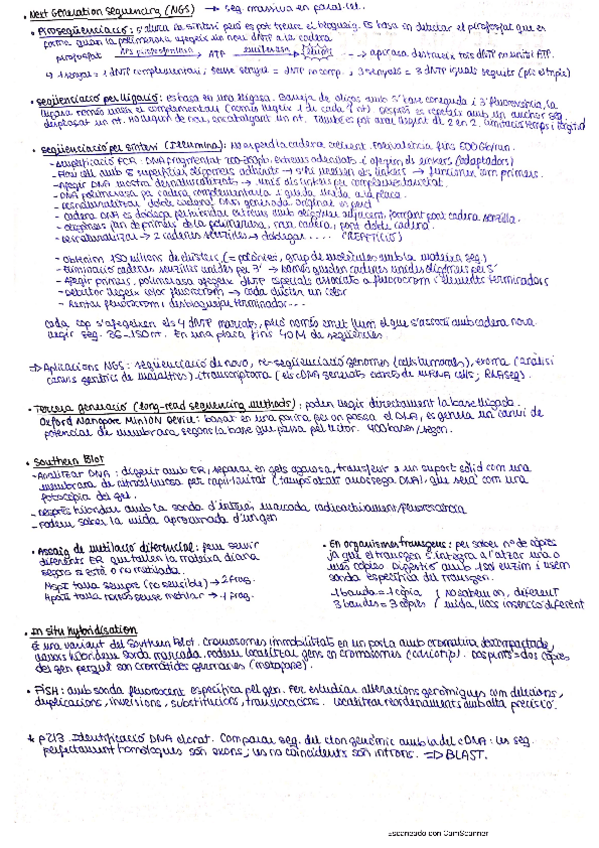 • Next Generation Sequencing (NGS) → seq. massiva en paral·lel.
• Piroseqüenciació: s'atura la síntesi però es pot treure el bloqueig. Es basa en detectar el pirofosfat que es
forma quan la polimerasa afegeix un nou dNTP a la cadena.
pirofosfat → ATP → apirasa destrueix tots dNTP no units i ATP.
↳ 1 senyal = 1 dNTP complementari; sense senyal = dNTP no comp.; 3 senyals = 3 dNTP iguals seguits
• Seqüenciació per lligació: es basa en una lligasa. Barreja de oligos amb 5' base coneguda i 3' fluorescència, la
lligasa només uneix el complementari (només llegeix 1 de cada nt). Després es repeteix amb un anchor seq
desplaçat un nt. També es pot anar llegint de 2 en 2. Limitacions temps i longitud
• Seqüenciació per síntesi (Illumina): No es perd la cadena creixent. Equivalència fins 600 Gb/run.
- Amplificació PCR: DNA fragmentat 200-250pb. Extrems adenilats i afegim els linkers (adaptadors)
- Flow cell amb superfície oligòmers adherits → s'hi uneixen els linkers → funcionen com primers.
- Afegir DNA mostra desnaturalitzat → unió als linkers per complementarietat.
- DNA polimerasa fa cadena complementària i queda unida a la placa.
- Desnaturalitzar doble cadena DNA generada. Original es perd
- cadena DNA es doblega per hibridar extrems amb oligòmer adjacent, formant pont cadena senzilla.
- oligòmers fan de primers de la polimerasa, nova cadena, pont doble cadena.
- Desnaturalitzar → 2 cadenes senzilles → doblegar .... (REPETICIÓ)
- Obtenim 150 milions de clústers (= polònies, grup de molècules amb la mateixa seq)
- Eliminació cadenes senzilles unides per 3' → només queden cadenes unides oligòmers per 5'
- Afegir primers, polimerasa afegeix dNTP especials associats a fluorocrom i elements terminadors
- Detector llegeix color fluorocrom → cada clúster un color
- Rentar fluorocrom i desbloquejar terminador...
cada cop s'afegeixen els 4 dNTP marcats, però només emet llum el que s'associï amb cadena nova
llegir seq. 36-150nt. En una placa fins 40M de seqüències.
⇒ Aplicacions NGS: seqüenciació de novo, re-seqüenciació genomes (cells tumorals), exoma (anàlisi
canvis genètics de malalties) i transcriptoma (els cDNA generats extrets de mRNA cells; RNAseq).
• Tercera generació (long-read sequencing methods): poden llegir directament la base lligada.
Oxford Nanopore MinION Device: basat en una porina per on passa el DNA, es genera un canvi de
potencial de membrana segons la base que passa pel lector. 400 bases/segon.
• Southern Blot
- Analitzar DNA: digerit amb ER, separar en gels agarosa, transferir a un suport sòlid com una
membrana de nitrocel·lulosa per capil·laritat (tampó alcalí arrossega DNA), que serà com una
fotocòpia del gel.
- després hibridar amb la sonda d'interès marcada radioactivament/fluorescència
- podem saber la mida aproximada d'un gen
• Assaig de metilació diferencial: fem servir
diferents ER que tallen la mateixa diana
segons si està o no metilada.
MspI talla sempre (no sensible) → 2 frag.
HpaII talla només sense metilar → 1 frag.
• En organismes transgens: per saber nº de còpies
ja que el transgen s'integra a l'atzar una o
més còpies. Digestió amb 1 sol enzim i usem
sonda específica del transgen.
1 banda = 1 còpia
3 bandes = 3 còpies } no sabem on, diferent
mida, llocs inserció diferent
• In situ hybridisation
És una variant del Southern Blot. Cromosomes immobilitzats en un porta amb cromatina descompactada,
llavors hibridem sonda marcada. Podem localitzar gens en cromosomes (cariotip). Dos punts = dos còpies
del gen perquè són cromàtides germanes (metafase).
• FISH: amb sonda fluorescent específica pel gen. Per estudiar alteracions genòmiques com delecions,
duplicacions, inversions, substitucions, translocacions. Localitzar reordenaments amb alta precisió.
* p213. Identificació DNA clonat. Comparar seq. del clon genòmic amb la del cDNA: les seq.
perfectament homòlogues són exons; les no coincidents són introns. ⇒ BLAST.
Escaneado con CamScanner